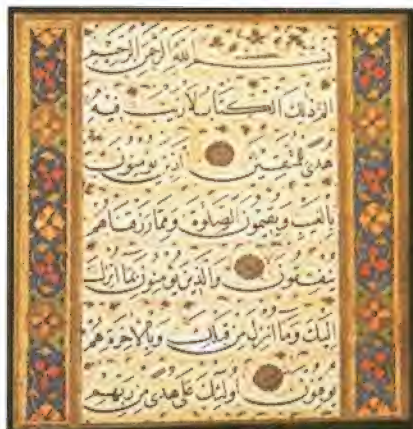 بسم الله الرحمن الرحيم
الم ذلك الكتاب لا ريب فيه
هدى للمتقين الذين يؤمنون
بالغيب ويقيمون الصلوة ومما رزقناهم
ينفقون والذين يؤمنون بما انزل
اليك وما أنزل من قبلك وبالآخرة هم
يوقنون أولئك على هدى من ربهم